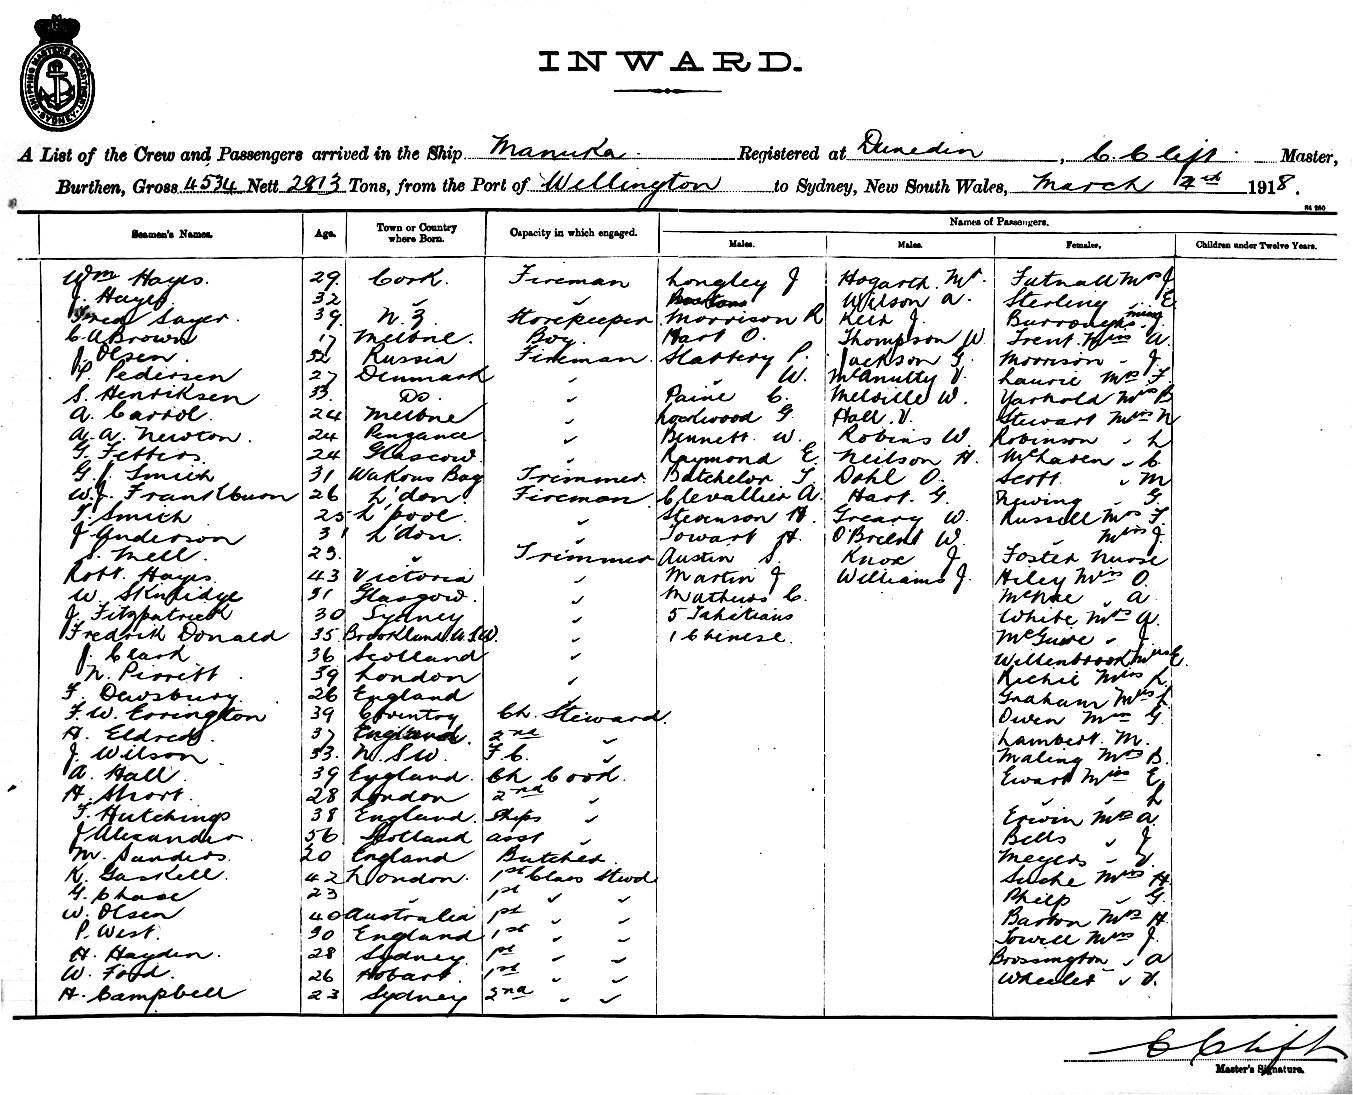 SHIPPING MASTERS DEPARTMENT SYDNEY
INWARD.
A List of the Crew and Passengers arrived in the Ship Manuka Registered at Dunedin, C. Clift Master,
Burthen, Gross 4534 Nett 2813 Tons, from the Port of Wellington to Sydney, New South Wales, March 1918.
Names of Passengers.
Seamen's Names. Age. Town or Country where Born. Capacity in which engaged. Males. Males. Females. Children under Twelve Years.
Wm Hayes. 29. Cork. Fireman Longley J Hogarth Mr. Tutnall Mrs J
J. Hayes 32 " " Wilson A. Sterling " E
Fred Sayer 39 N.Z. Storekeeper Morrison R Keir J. Burroughs
C. A Brown 17 Melbne. Boy. Hart O. Thompson W Trent Miss A.
J Olsen. 32 Russia Fireman Slattery P. Jackson G. Morrison " J
P Pedersen 27 Denmark " " W. McAnulty V. Laurie Mrs F
S. Henriksen 33. Do. " Paine C. Melville W. Yarhold Miss B
A. Carrol. 24 Melbne " Lockwood G Hall. V. Stewart Miss N
A. A. Newton. 24 Penzance " Bennett W. Robins W. Robinson " L
G. Fetters 24 Glasgow " Raymond E. Neilson H. McLaren " C.
G. J. Smith 31 Wakous Bay Trimmer Batchelor T. Dahl O. Scott " M
W. J. Frankburn 26 L'don. Fireman Clevallier A. Hart. G. Ewing " G
T. Smith 25 L'pool. " Stevenson H. Greary W. Russell Mrs F.
J Anderson 31 L'don. " Towart H. O'Brient W. " Miss J.
J. Mell. 23. " Trimmer Austin S. Knox J Foster Nurse
Robt. Hayes 43 Victoria " Martin J Williams J. Hiley Miss O.
W. Skillidge 31 Glasgow. " Mathews C. McRae " A
J. Fitzpatrick 30 Sydney " 5 Tahitians White Mrs A.
Fredrik Donald 35 " 1 Chinese. McGuire " J.
J. Clark 36 Scotland " Willenbrook Miss E.
N. Pirrett 39 London " Richie Miss L
F. Dewsbury. 26 England " Graham Mrs L
F. W. Errington 39 Coventry Ch. Steward. Owen Mrs G.
H. Eldred 37 England. 2nd " Lambert. M.
J. Wilson 33. N.S.W. F.C. " Maling Mrs B.
A. Hall. 39 England. Ch Cook. Ewart Miss E,
H. Short. 28 London 2nd " " " L
T. Hutchings 38 England. Ships " Erwin Mrs A.
J Alexander 56 Scotland asst " Bells " J
M. Sanders. 20 England Butcher. Meyers " V.
K. Gaskell. 42 London. 1st Class Stewd Suche Miss H
G. Chase 23 " 1st " " Philp " G.
W. Olsen 40 Australia 1st " " Barton Mrs H.
P. West. 30 England 1st " " Towell Miss J.
H. Hayden. 28 Sydney. 1st " " Brossington " A
W. Ford. 26 Hobart. 1st " " Wheeler " V.
H. Campbell 23 Sydney 2nd " "
C Clift
Master's Signature.